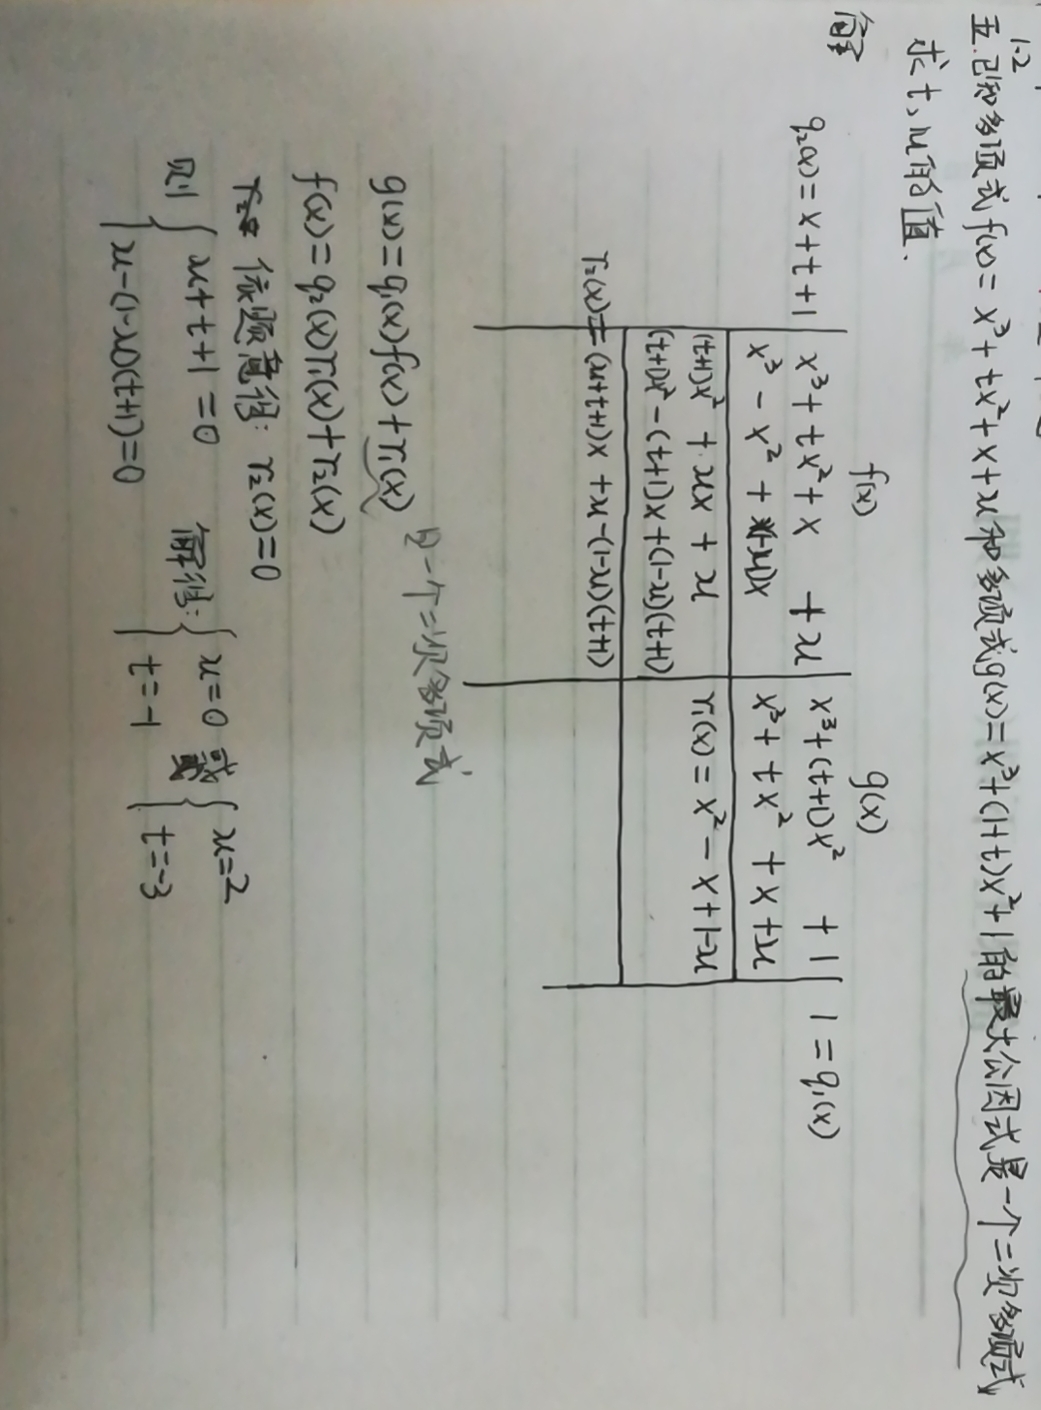 1.2
五.已知多项式f(x)=x³+tx²+x+u和多项式g(x)=x³+(1+t)x²+1的最大公因式是一个二次多项式
求t,u的值.
解
f(x) g(x)
q₂(x)=x+t+1 x³+tx²+x +u x³+(t+1)x² +1 1=q₁(x)
x³-x²+(1-u)x x³+tx²+x+u
(t+1)x²+ux+u r₁(x)=x²-x+1-u
(t+1)x²-(t+1)x+(1-u)(t+1)
r₂(x)=(u+t+1)x+u-(1-u)(t+1)
是一个二次多项式
g(x)=q₁(x)f(x)+r₁(x)
f(x)=q₂(x)r₁(x)+r₂(x)
依题意得:r₂(x)=0
则{u+t+1=0 解得:{u=0 或{u=2
u-(1-u)(t+1)=0 t=-1 t=-3